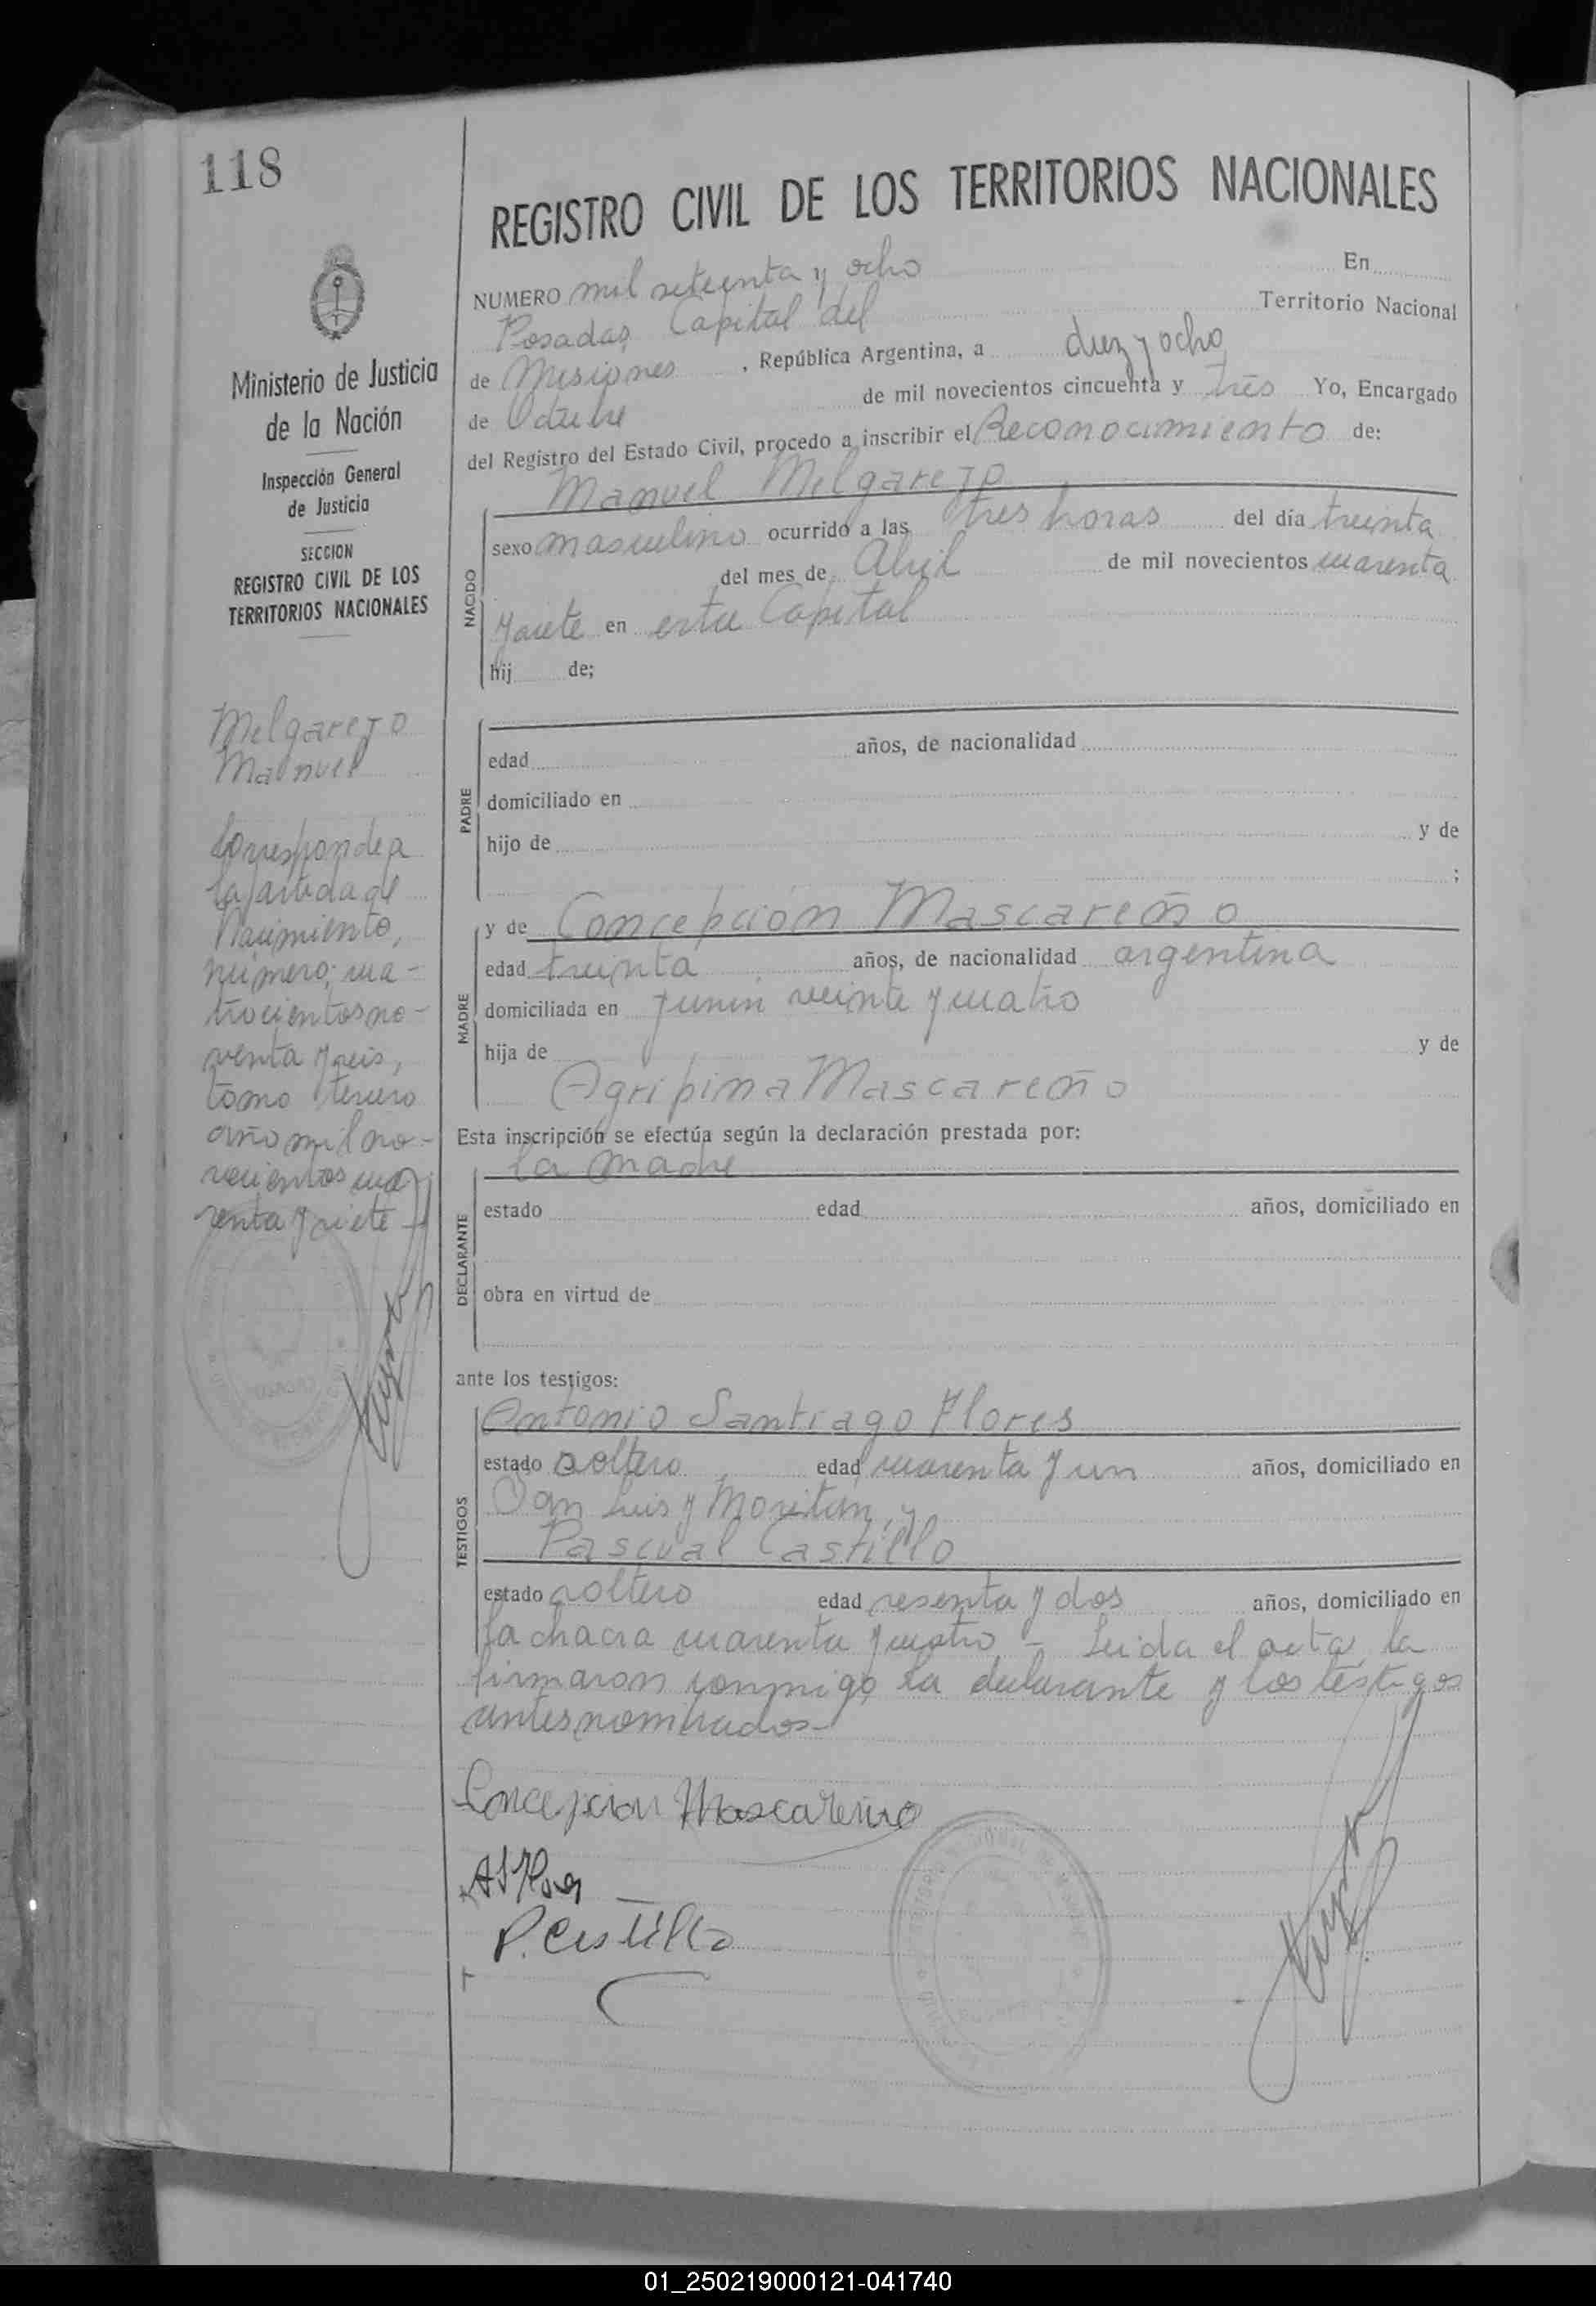 118
REGISTRO CIVIL DE LOS TERRITORIOS NACIONALES
Ministerio de Justicia
de la Nación
Inspección General
de Justicia
SECCION
REGISTRO CIVIL DE LOS
TERRITORIOS NACIONALES
Melgarejo
Manuel
Corresponde a
la partida de
Nacimiento,
número; cua-
trocientos no-
venta y seis,
tomo tercero
año mil no-
vecientos cua
renta y siete
NUMERO mil setenta y ocho En
Posadas, Capital del Territorio Nacional
de Misiones, República Argentina, a diez y ocho
de Octubre de mil novecientos cincuenta y tres Yo, Encargado
del Registro del Estado Civil, procedo a inscribir el Reconocimiento de:
Manuel Melgarejo
NACIDO
sexo masculino ocurrido a las tres horas del día treinta
del mes de Abril de mil novecientos cuarenta
y siete en esta Capital
hij de;
PADRE
edad años, de nacionalidad
domiciliado en
hijo de y de
;
MADRE
y de Concepción Mascareño
edad treinta años, de nacionalidad argentina
domiciliada en Junín veinte y cuatro
hija de y de
Agripina Mascareño
Esta inscripción se efectúa según la declaración prestada por:
la madre
DECLARANTE
estado edad años, domiciliado en
obra en virtud de
ante los testigos:
TESTIGOS
Antonio Santiago Flores
estado soltero, edad cuarenta y un años, domiciliado en
San Luis y Moritán, y
Pascual Castillo
estado soltero edad sesenta y dos años, domiciliado en
la chacra cuarenta y cuatro - Leida el acta, la
firmaron conmigo la declarante y los testigos
antes nombrados-
Concepcion Mascareño
P. Castillo
01_250219000121-041740